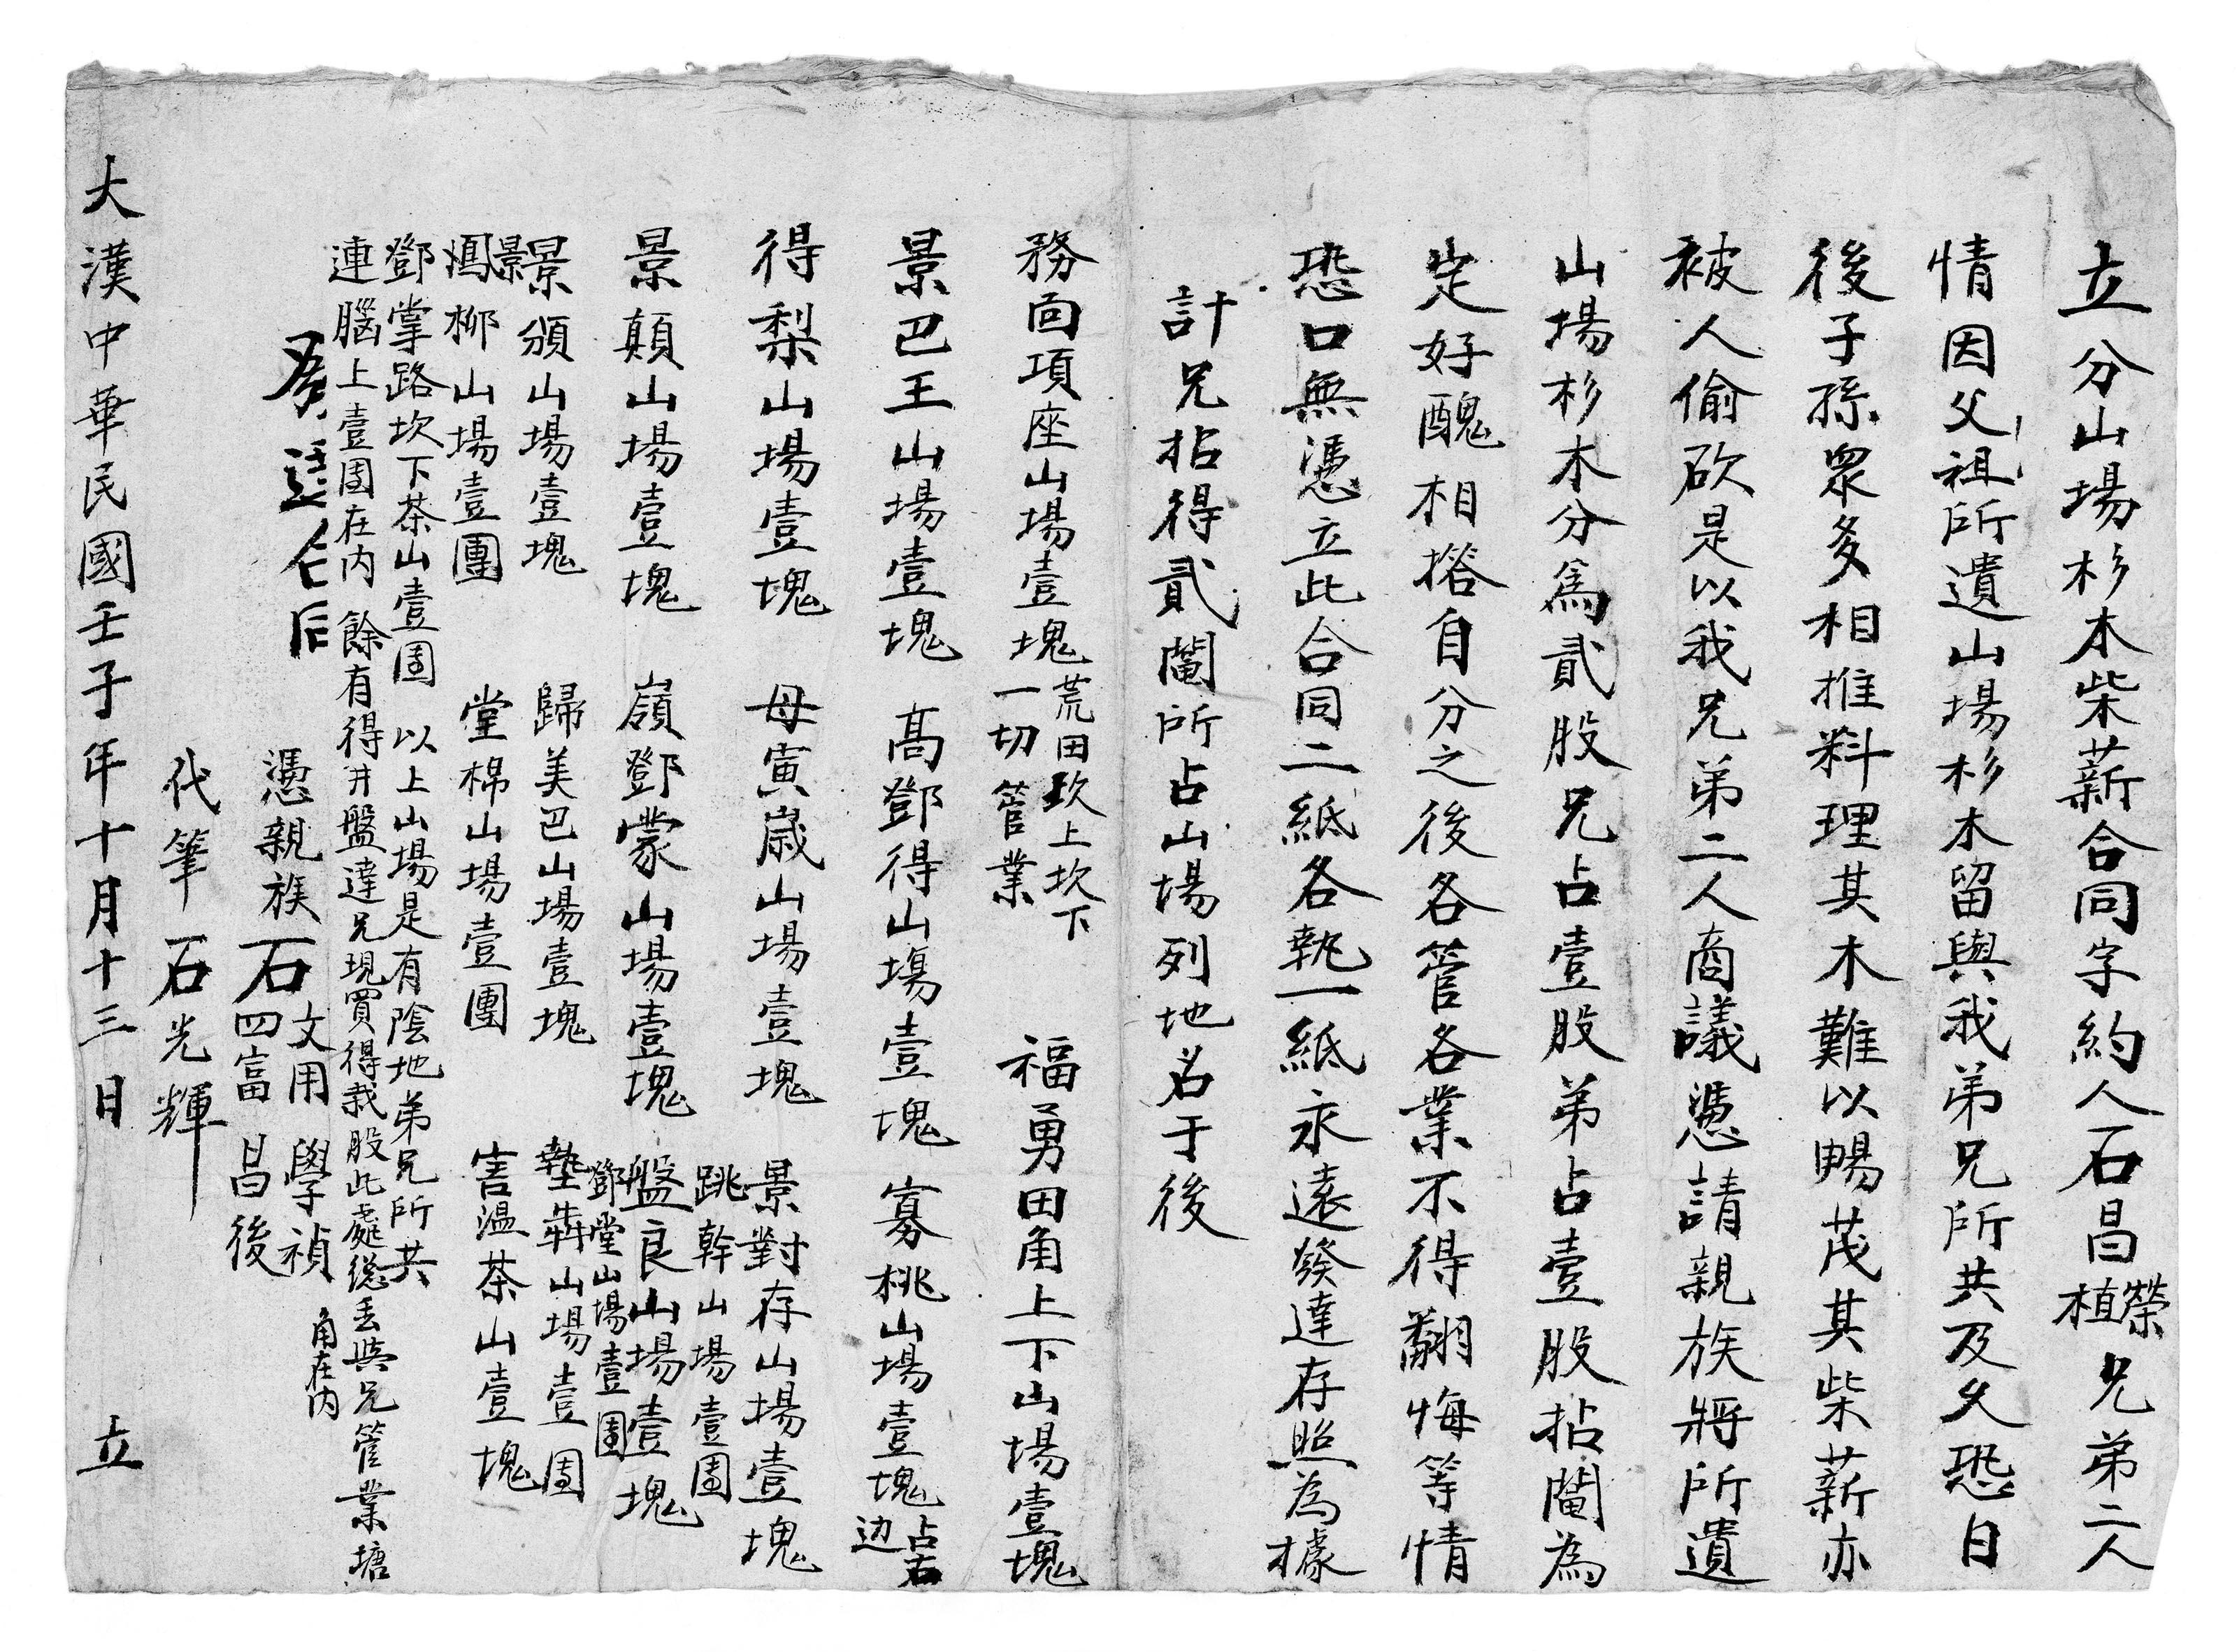 立分山場杉木柴薪合同字約人石昌榮植兄弟二人
情因父祖所遺山場杉木留與我弟兄所共及久恐日
後子孫眾多相推料理其木難以暢茂其柴薪亦
被人偷砍是以我兄弟二人商議憑請親族將所遺
山場杉木分為貳股兄占壹股弟占壹股拈鬮為
定好醜相搭自分之後各管各業不得翻悔等情
恐口無憑立此合同二紙各執一紙永遠發達存照為據
計兄拈得貳鬮所占山場列地名于後
務向項座山場壹塊荒田砍上坎下一切管業 福勇田角上下山場壹塊
景巴王山場壹塊 高鄧得山場壹塊 寡桃山場壹塊占右边
得梨山場壹塊 母寅歲山場壹塊 景對存山場壹塊
跳幹山場壹團
景顛山場壹塊 嶺鄧蒙山場壹塊 盤良山場壹塊
鄧堂山場壹團
景頒山場壹塊 歸美巴山場壹塊 墊犇山場壹團
景鳳柳山場壹團 堂棉山場壹團 害温茶山壹塊
鄧掌路坎下茶山壹團 以上山場是有陰地弟兄所共
連腦上壹團在內 餘有得井盤達兄現買得栽股此處總丟與兄管業塘
角在內
憑親族石文用 學禎
四富 昌後
代筆 石光輝
大漢中華民國壬子年十月十三日 立